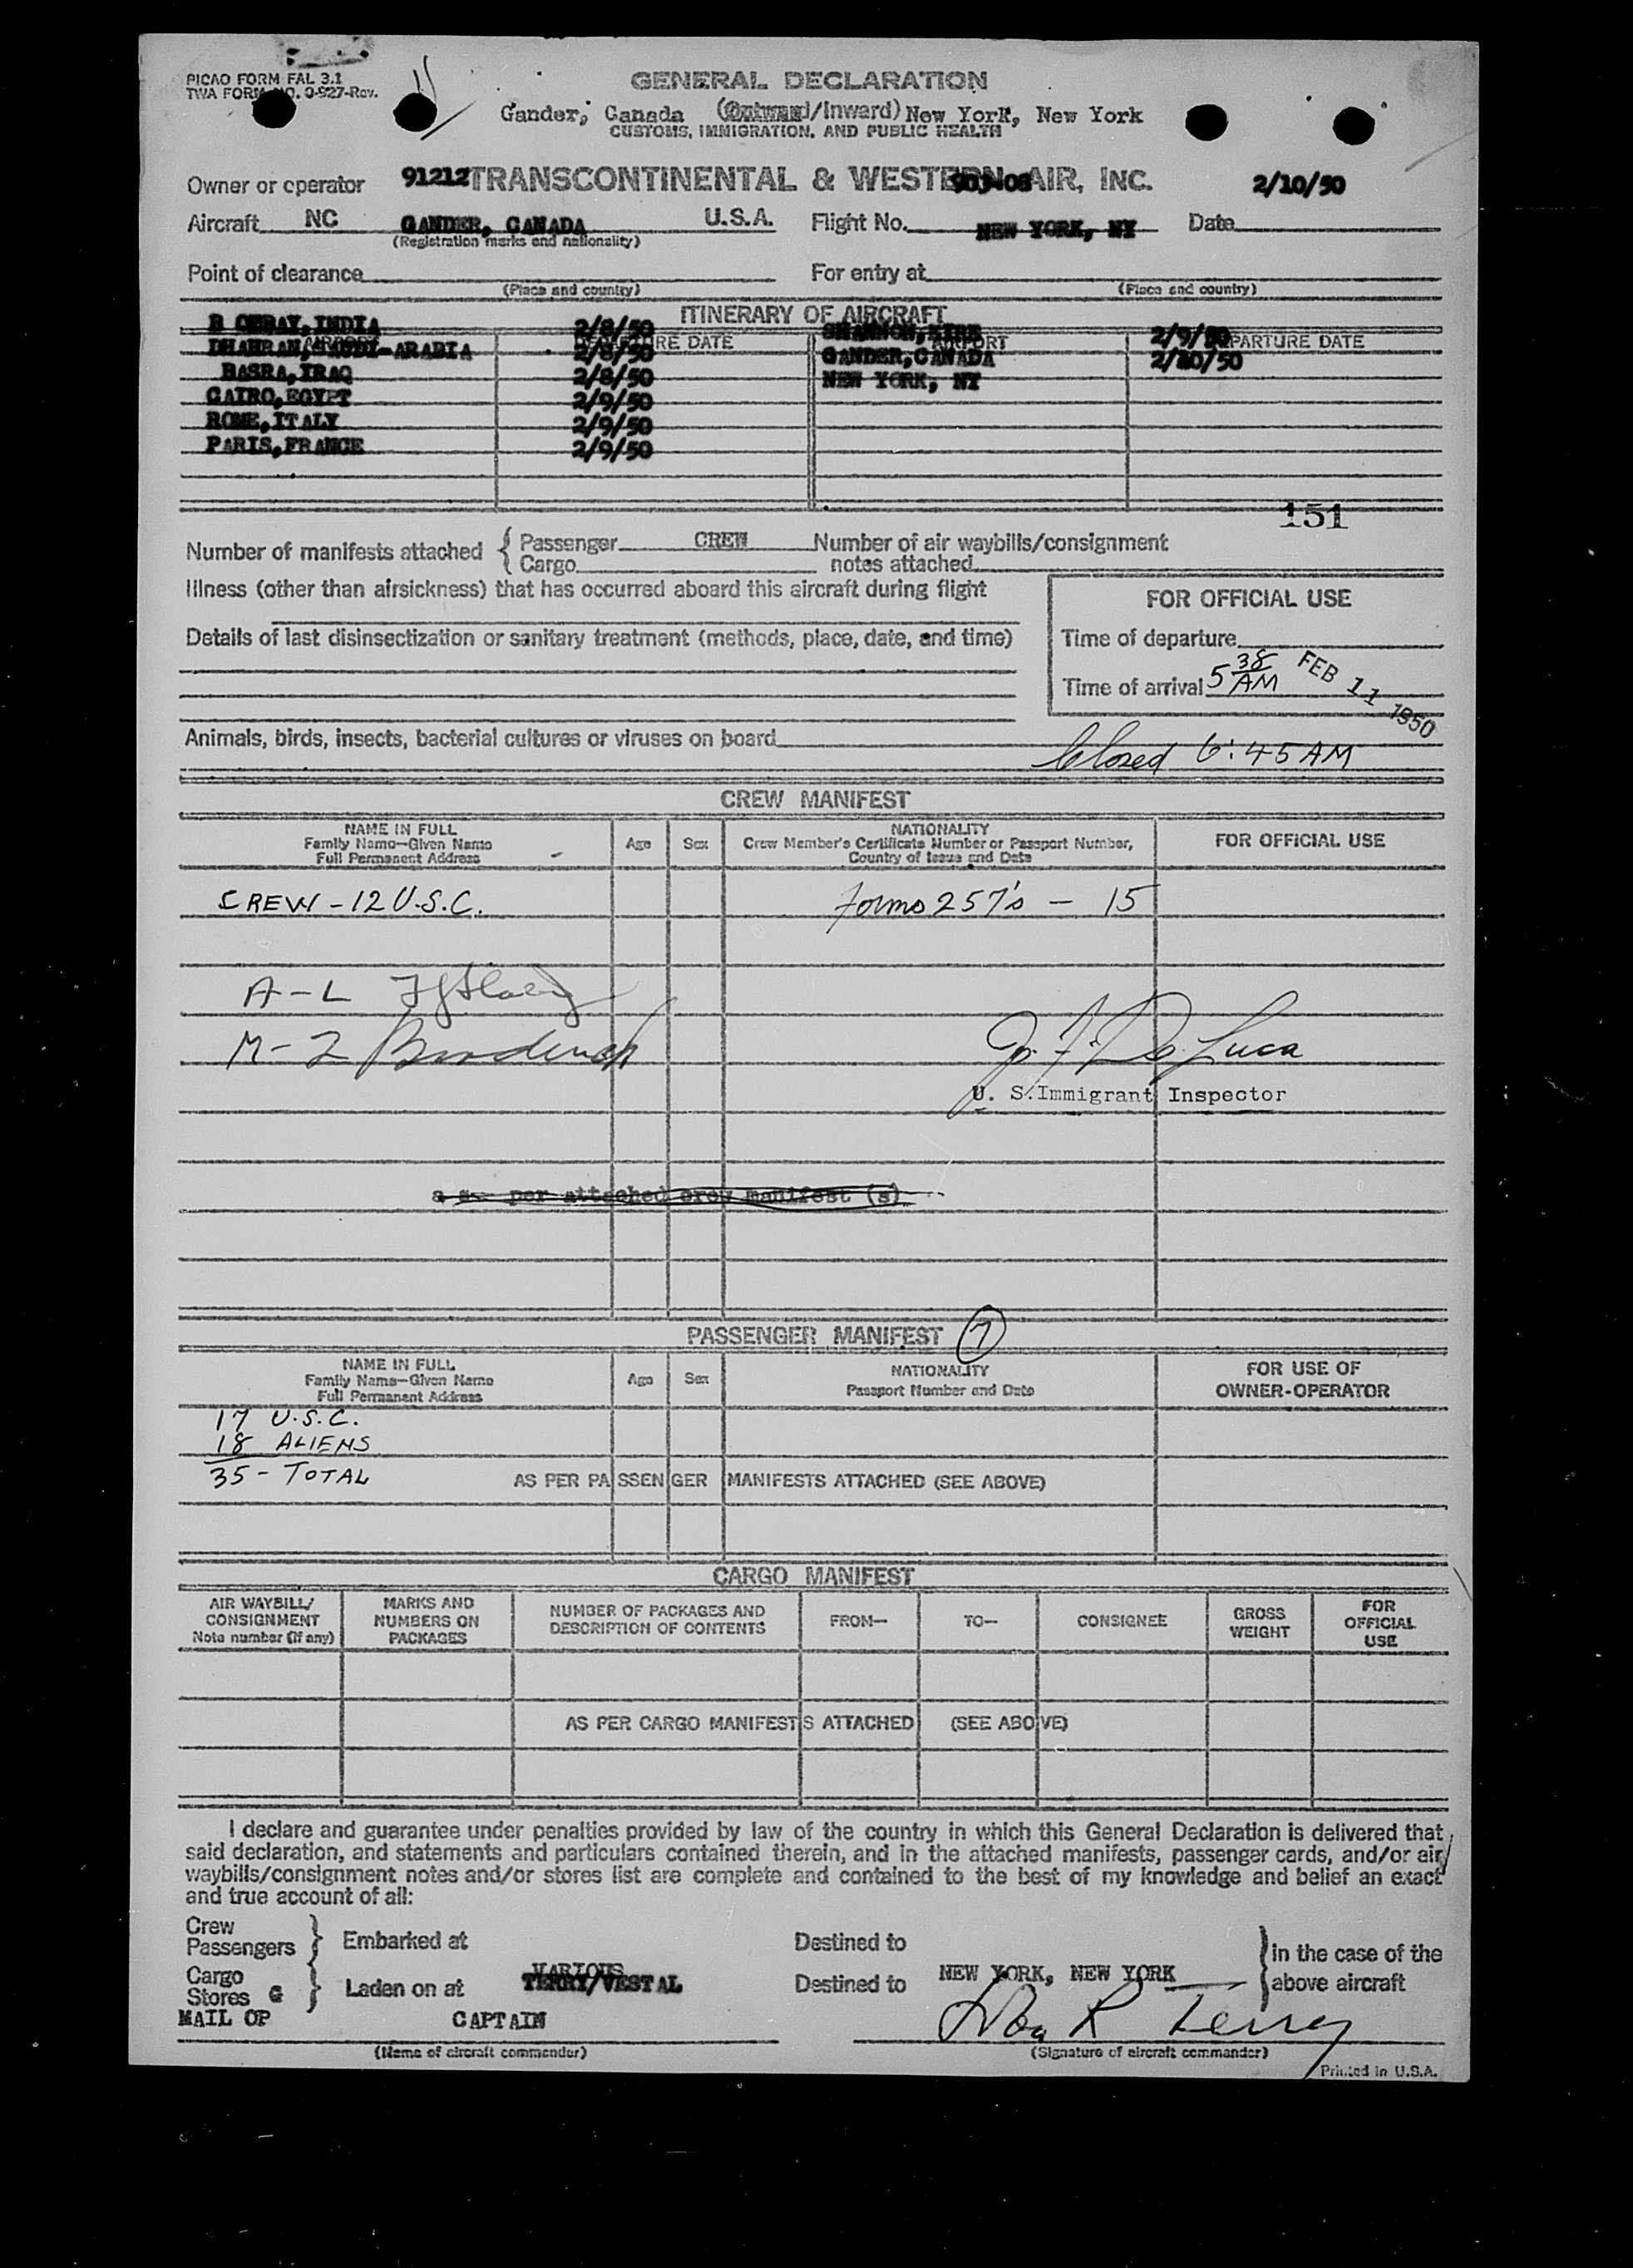 PICAO FORM FAL 3.1
TWA FORM NO. 0-927-Rev.
GENERAL DECLARATION
Gander, Canada (Outward/Inward) New York, New York
CUSTOMS, IMMIGRATION, AND PUBLIC HEALTH
Owner or operator 91212 TRANSCONTINENTAL & WESTERN AIR, INC. 2/10/50
Aircraft NC GANDER, CANADA U.S.A. Flight No. NEW YORK, NY Date
(Registration marks and nationality)
Point of clearance For entry at
(Place and country) (Place and country)
ITINERARY OF AIRCRAFT
AIRPORT DEPARTURE DATE AIRPORT DEPARTURE DATE
B OMBAY, INDIA 2/8/50 SHANNON, EIRE 2/9/50
DHAHRAN, SAUDI-ARABIA 2/8/50 GANDER, CANADA 2/10/50
BASRA, IRAQ 2/8/50 NEW YORK, NY
CAIRO, EGYPT 2/9/50
ROME, ITALY 2/9/50
PARIS, FRANCE 2/9/50
151
Number of manifests attached { Passenger CREW Number of air waybills/consignment
Cargo notes attached
Illness (other than airsickness) that has occurred aboard this aircraft during flight
FOR OFFICIAL USE
Details of last disinsectization or sanitary treatment (methods, place, date, and time)
Time of departure
Time of arrival 5 38 AM FEB 11 1950
Animals, birds, insects, bacterial cultures or viruses on board
Closed 6:45 AM
CREW MANIFEST
NAME IN FULL
Family Name—Given Name
Full Permanent Address
Age Sex
NATIONALITY
Crew Member's Certificate Number or Passport Number,
Country of Issue and Date
FOR OFFICIAL USE
CREW - 12 U.S.C. Forms 257's - 15
A-L
M-Z
J. F. De Luca
U. S. Immigrant Inspector
a s per attached crew manifest (s)
PASSENGER MANIFEST 7
NAME IN FULL
Family Name—Given Name
Full Permanent Address
Age Sex
NATIONALITY
Passport Number and Date
FOR USE OF
OWNER-OPERATOR
17 U.S.C.
18 ALIENS
35 - TOTAL AS PER PASSENGER MANIFESTS ATTACHED (SEE ABOVE)
CARGO MANIFEST
AIR WAYBILL/
CONSIGNMENT
Note number (if any)
MARKS AND
NUMBERS ON
PACKAGES
NUMBER OF PACKAGES AND
DESCRIPTION OF CONTENTS
FROM—
TO—
CONSIGNEE
GROSS
WEIGHT
FOR
OFFICIAL
USE
AS PER CARGO MANIFESTS ATTACHED (SEE ABOVE)
I declare and guarantee under penalties provided by law of the country in which this General Declaration is delivered that
said declaration, and statements and particulars contained therein, and in the attached manifests, passenger cards, and/or air
waybills/consignment notes and/or stores list are complete and contained to the best of my knowledge and belief an exact
and true account of all:
Crew
Passengers } Embarked at Destined to } in the case of the
Cargo
Stores G } Laden on at VARIOUS TERRY/VESTAL Destined to NEW YORK, NEW YORK above aircraft
MAIL OP CAPTAIN R Terry
(Name of aircraft commander) (Signature of aircraft commander)
Printed in U.S.A.